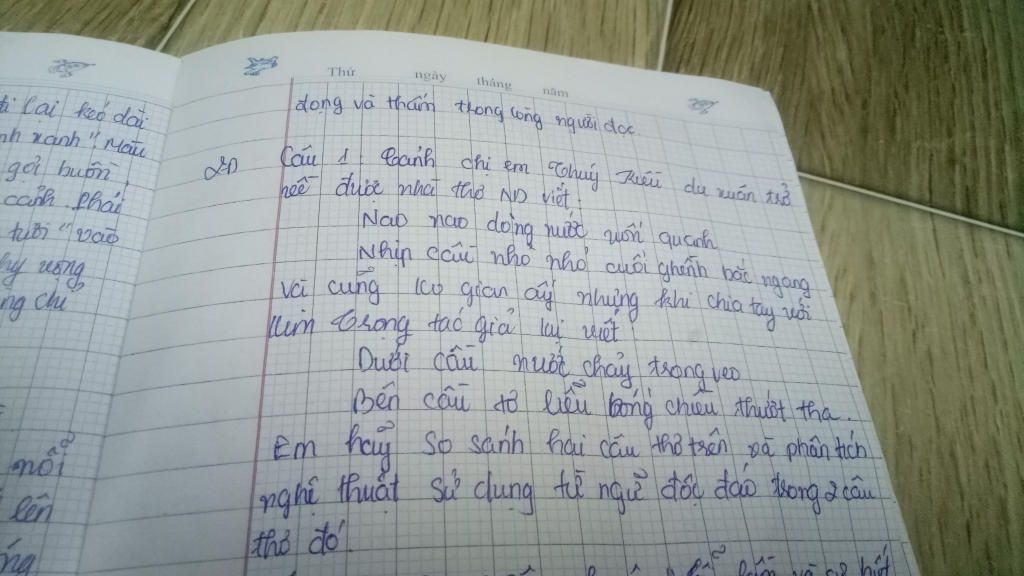 Thứ ngày tháng năm
đọng và thấm trong lòng người đọc
Câu 1 cảnh chị em Thuý Kiều du xuân trở
được nhà thơ ND viết:
Nao nao dòng nước uốn quanh
Nhịp cầu nho nhỏ cuối ghềnh bắc ngang
và cũng ko gian ấy nhưng khi chia tay với
Kim Trọng tác giả lại viết
Dưới cầu nước chảy trong veo
Bên cầu tơ liễu bóng chiều thướt tha.
Em hãy so sánh hai câu thơ trên và phân tích
nghệ thuật sử dụng từ ngữ độc đáo trong 2 câu
thơ đó.
lại kéo dài
xanh" màu
gợi buồn,
cảnh phải
tươi" vào
vọng
chi
nỗi
lên